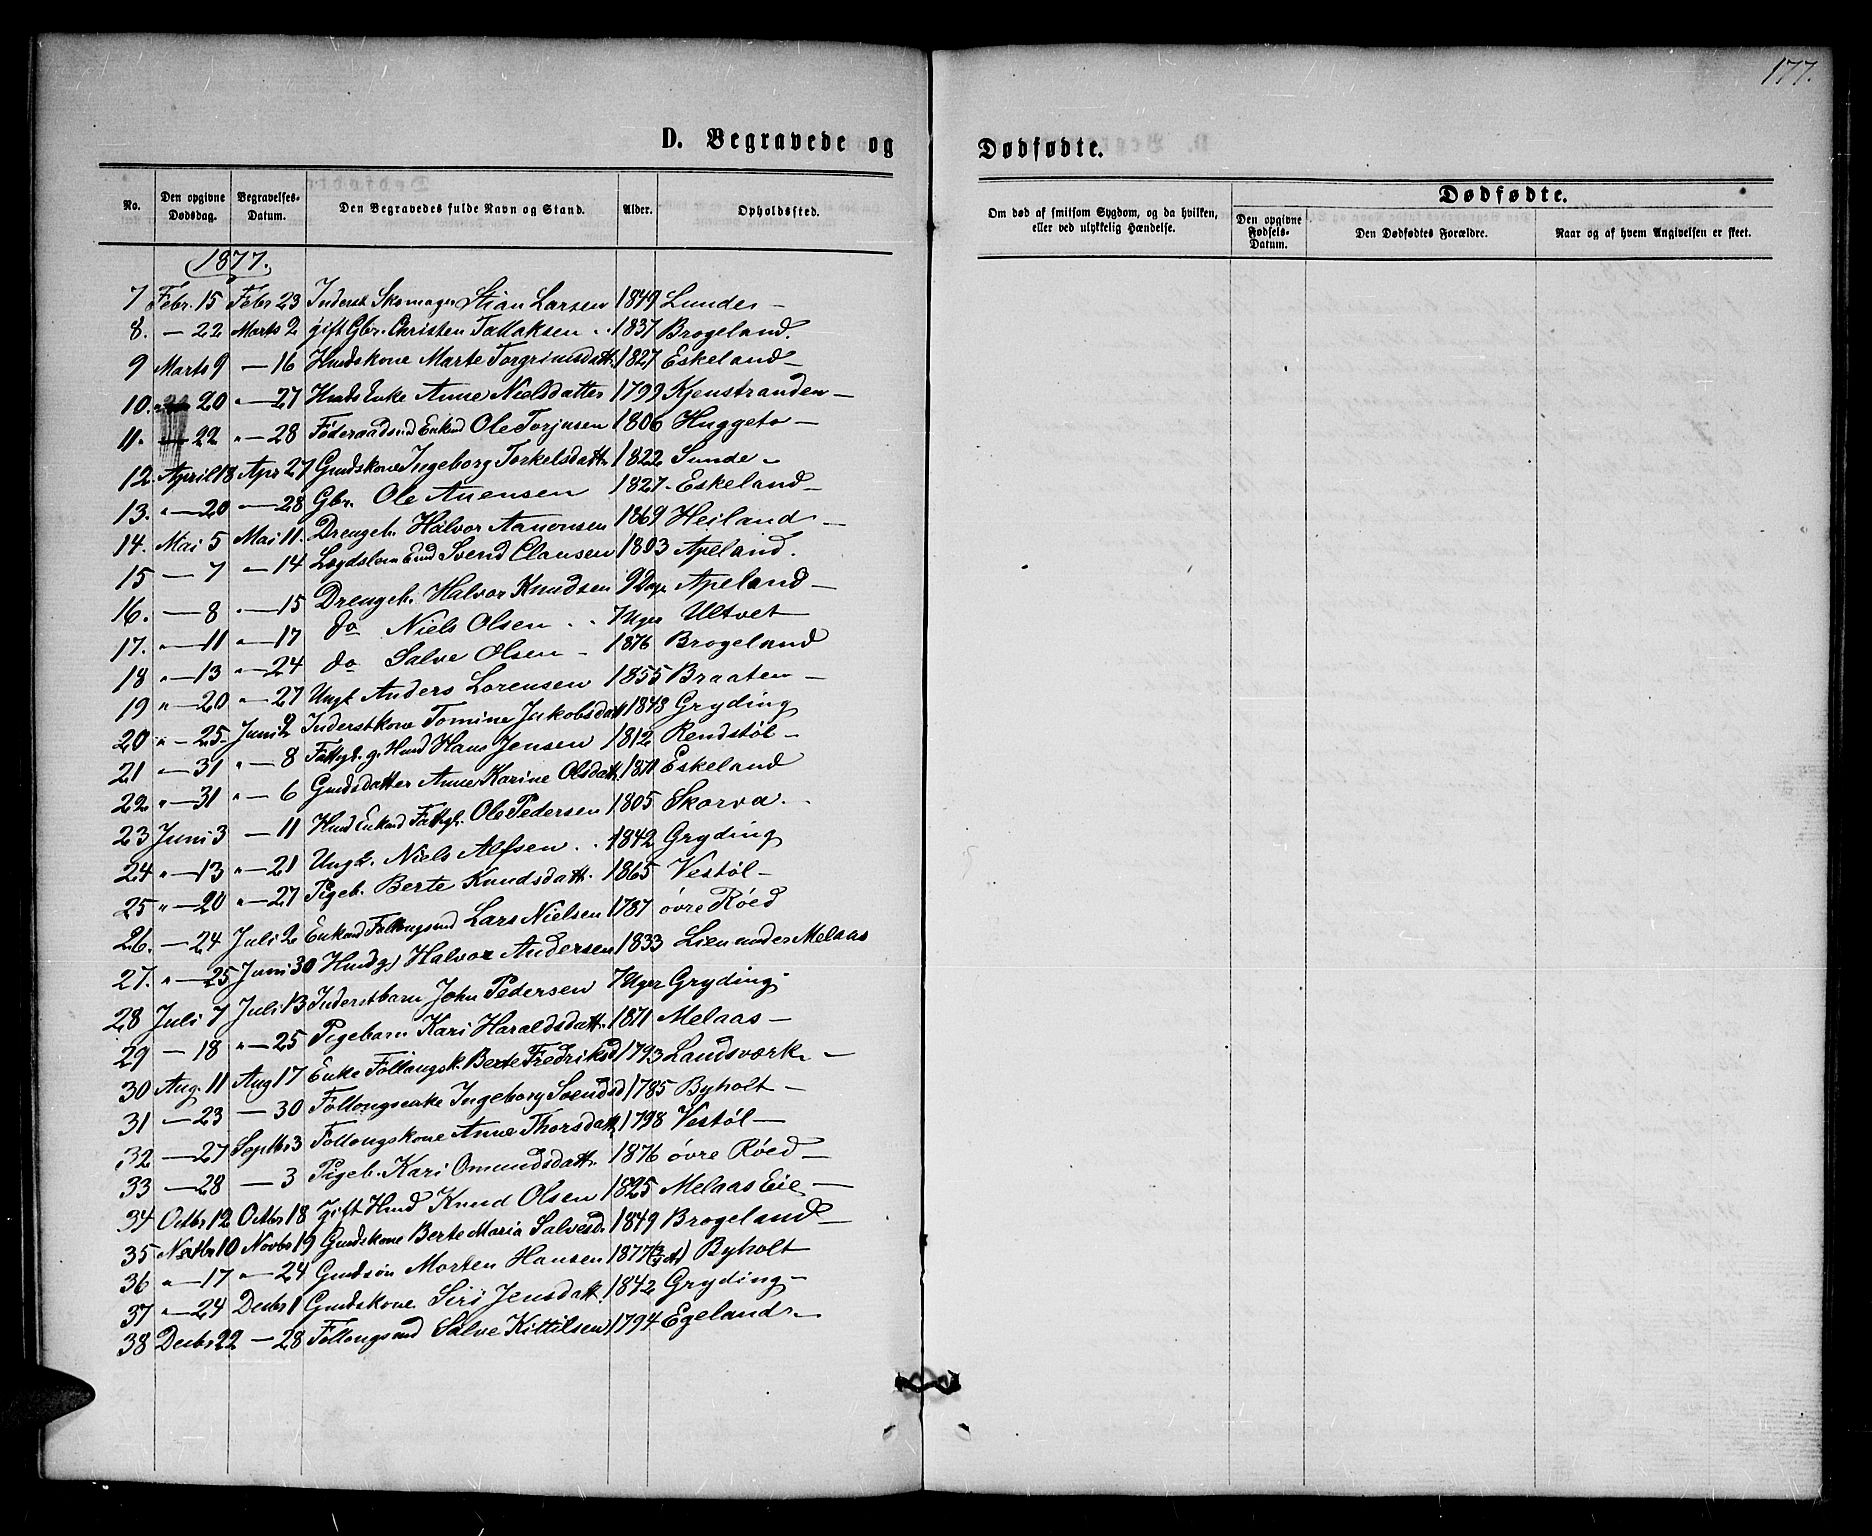 177.
D. Begravede og Dødfødte.
No. Den opgivne Dødsdag. Begravelses-Datum. Den Begravedes fulde Navn og Stand. Alder. Opholdssted. Om død af smitsom Sygdom, og da hvilken, eller ved ulykkelig Hændelse. Dødfødte. Den opgivne Fødsels-Datum. Den Dødfødtes Forældre. Naar og af hvem Angivelsen er skeet.
1877.
7 Febr. 15 Febr 23 Inderst Skomager Stian Larsen 1849 Lunde –
8. – 22 Marts 2 gift Gbr. Christen Tallaksen 1837 Brogeland.
9 Marts 9 – 16 Hmdskone Marte Torgrimsdatt. 1827 Eskeland –
10. 20 " – 27 Hmds Enke Anne Nielsdatter 1799 Kjenstranden –
11. – 22 " – 28 Føderaadsmd Enkmd Ole Torjusen 1806 Huggeto –
12 April 18 Apr 27 Gmdskone Ingeborg Torkelsdatt. 1822 Sunde –
13. " – 20 – 28 Gbr. Ole Auensen 1827 Eskeland –
14. Mai 5 Mai 11. Drengeb. Halvor Aanonsen 1869 Heiland –
15 – 7 " – 14 Lægdslem Emd Svend Clausen 1803 Apeland.
16. – 8 " – 15 Drengeb. Halvor Knudsen 92 Apeland –
17. " – 11 " – 17 do Niels Olsen 7 Uger Ultvet
18 " – 13 " – 24 do Salve Olsen – 1876 Brogeland
19 " – 20 " – 27 Ungk Anders Lorensen 1855 Braaten –
20 " – 25 Juni 2 Inderstkone Tomine Jakobsdatt 1848 Gryding
21 – 31 " – 8 Fattigl. g. Hmd Hans Jensen 1812 Rendstöl –
22 " – 31 " – 6 Gmdsdatter Anne Karine Olsdatt. 1871 Eskeland
23 Juni 3 – 11 Hmd Enkmd Fattgl. Ole Pedersen 1805 Skorva.
24 " – 13 " – 21 Ungk. Niels Alfsen 1842 Gryding
25 " – 20 " – 27 Pigeb. Berte Knudsdatt. 1865 Vestöl –
26. – 24 Juli 2 Enkmd Follougsmd Lars Nielsen 1787 övre Röed
27. " – 25 Juni 30 Hmd g) Halvor Andersen 1833 Lien under Melaas
28 Juli 7 Juli 13 Inderstbarn John Pedersen 7 Uger Gryding
29 – 18 " – 25 Pigebarn Kari Haraldsdatt. 1871 Melaas –
30 Aug. 11 Aug 17 Enke Föllougsk. Berte Fredriksd 1793 Landsværk –
31 – 23 – 30 Föllougsenke Ingeborg Svendsd 1785 Byholt –
32 – 27 Septbr 3 Föllougskone Anne Thorsdatt 1798 Vestöl –
33 – 28 – 3 Pigeb. Kari Omundsdatt. 1876 övre Röed –
34 Octbr 12 Octbr 18 gift Hmd Knud Olsen 1825 Melaas Eie –
35 Novbr 10 Novbr 19 Gmdskone Berte Maria Salvesd. 1849 Brogeland –
36 " – 17 " – 24 Gmdssön Morten Hansen 1877 Byholt
37 " – 24 Decbr 1 Gmdskone Siri Jensdatt. 1842 Gryding –
38 Decbr 22 – 28 Föllougsmd Salve Kittilsen 1794 Egeland –